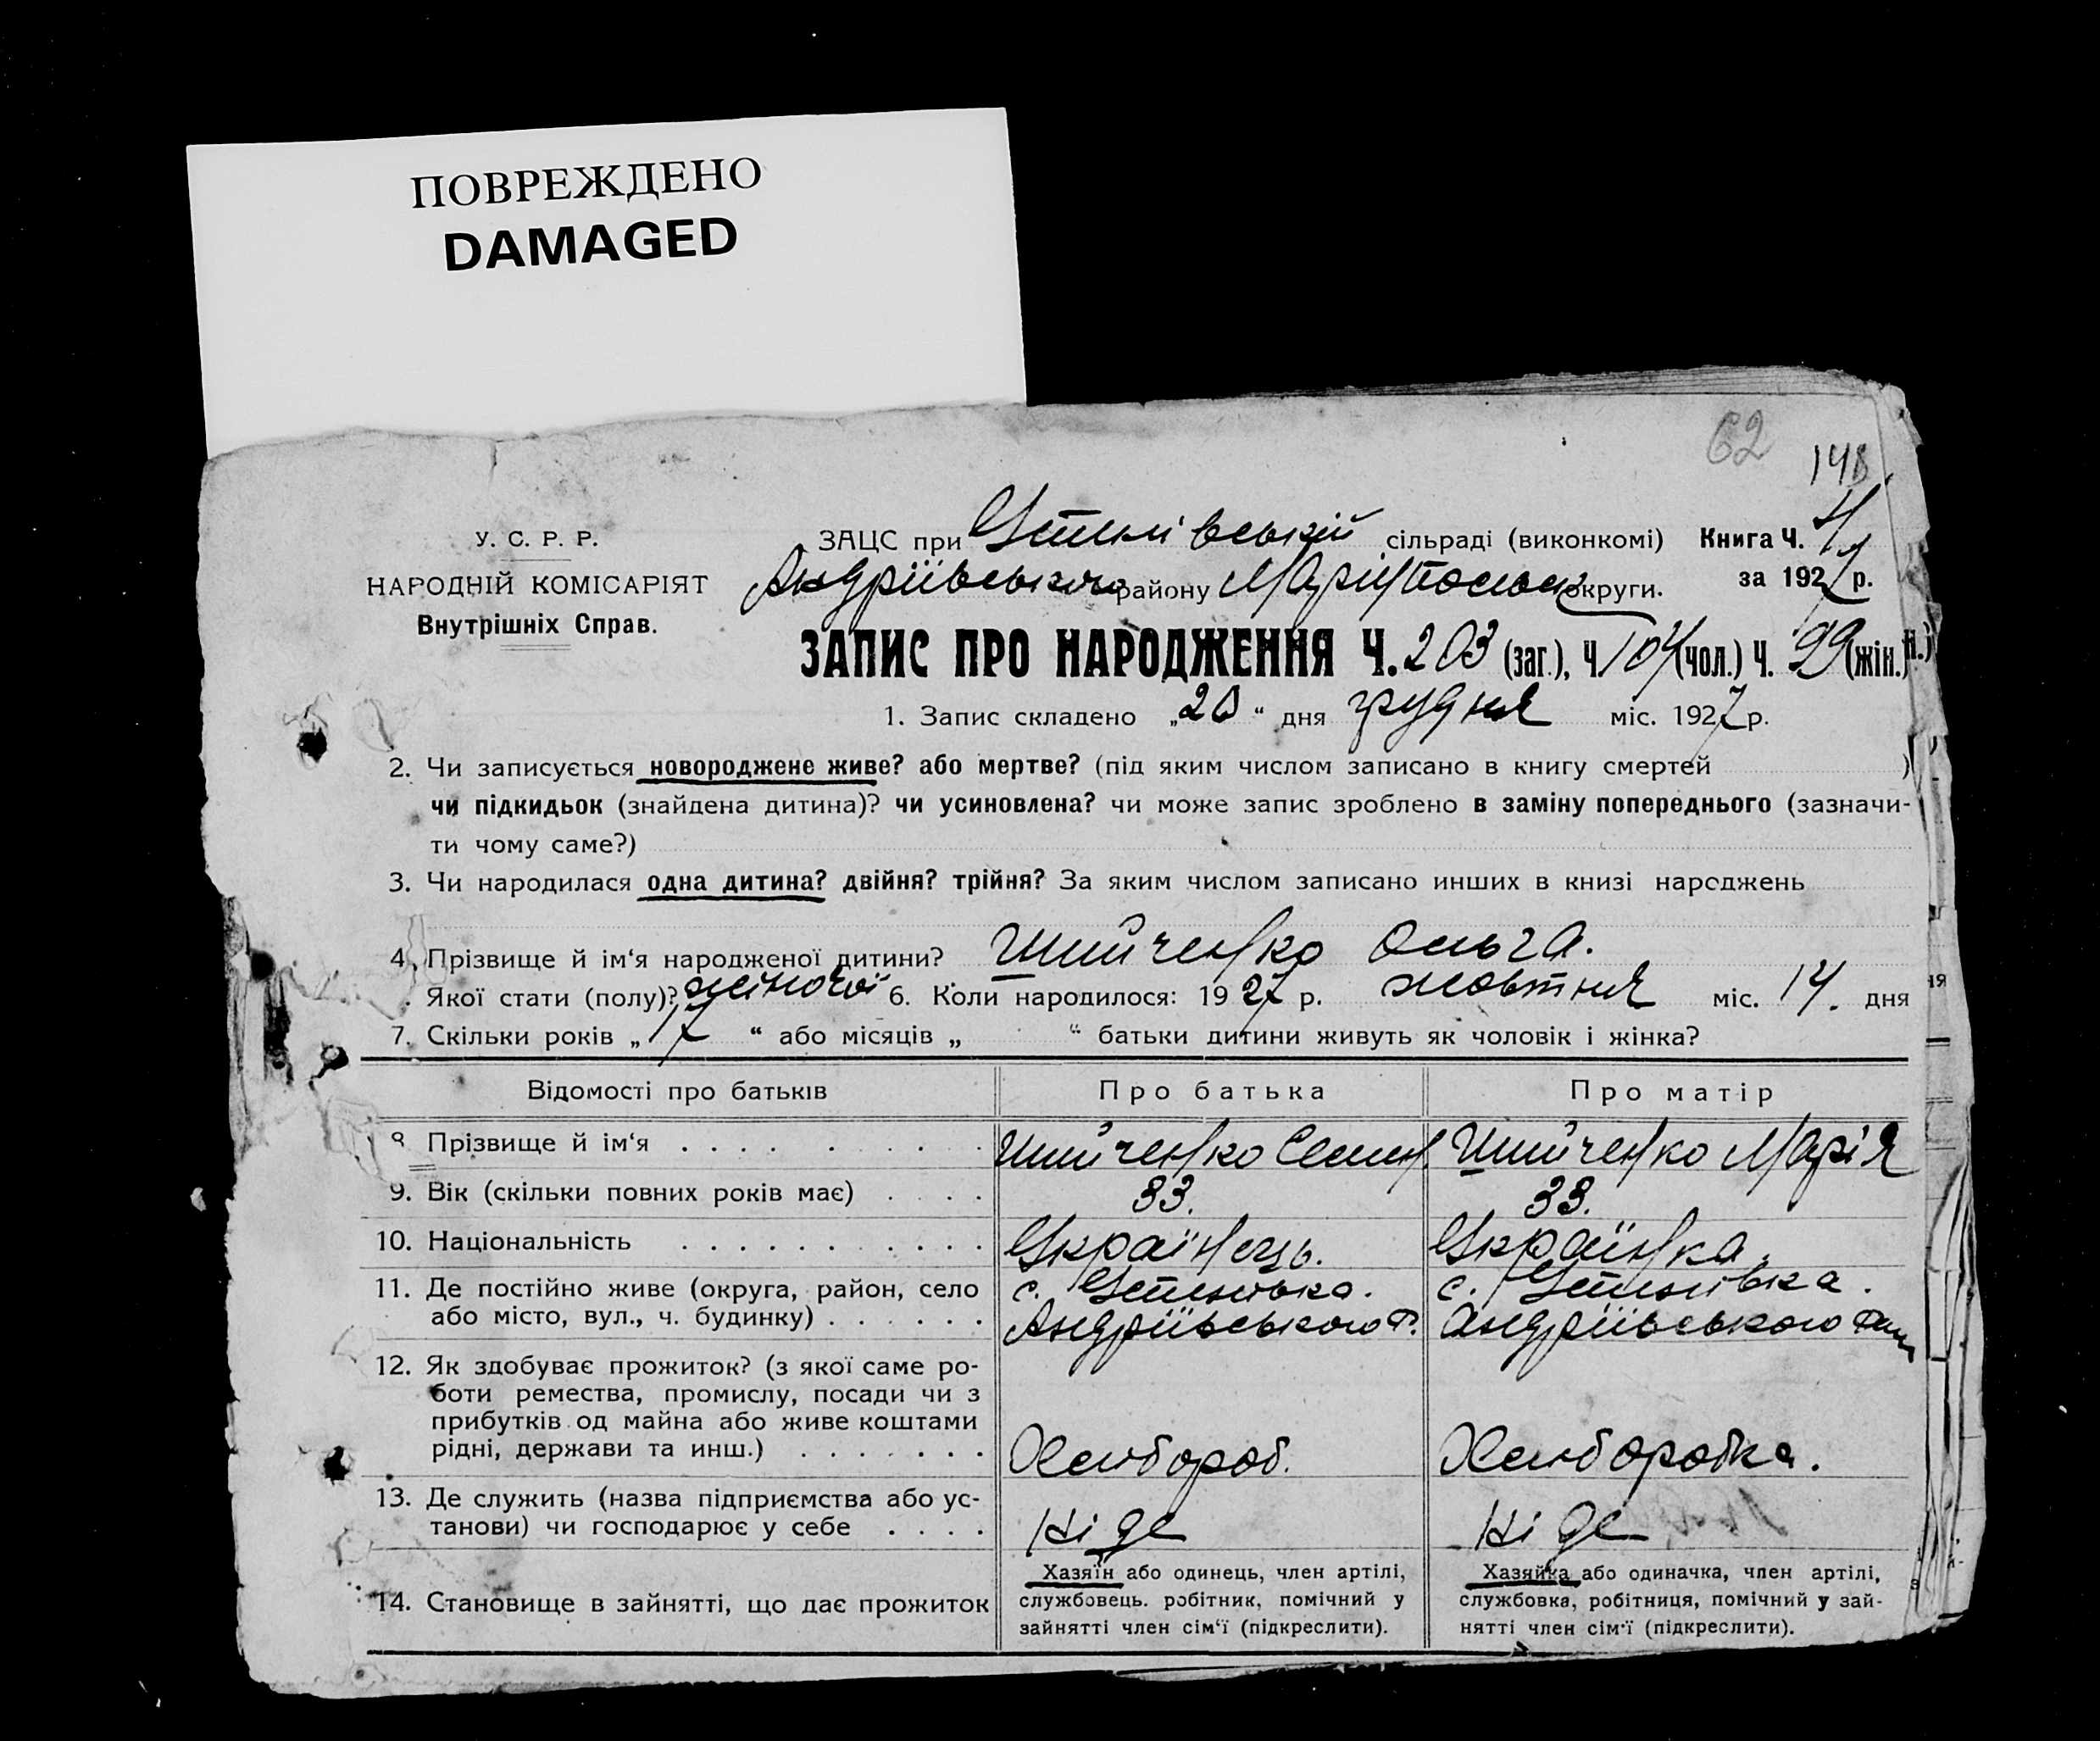 ПОВРЕЖДЕНО
DAMAGED
62
148
У. С. Р. Р.
НАРОДНІЙ КОМІСАРІЯТ
Внутрішніх Справ.
ЗАЦС при Устинівській сільраді (виконкомі) Книга Ч.
Андріївського району Маріупольськ округи. за 1927 р.
ЗАПИС ПРО НАРОДЖЕННЯ Ч. 203 (заг.), Ч. 104 (чол.) Ч. 99 (жін.)
1. Запис складено „20“ дня грудня міс. 1927 р.
2. Чи записується новороджене живе? або мертве? (під яким числом записано в книгу смертей )
чи підкидьок (знайдена дитина)? чи усиновлена? чи може запис зроблено в заміну попереднього (зазначи-
ти чому саме?)
3. Чи народилася одна дитина? двійня? трійня? За яким числом записано инших в книзі народжень
4. Прізвище й ім‘я народженої дитини? Шийченко Ольга.
. Якої стати (полу)? жіночої 6. Коли народилося: 1927 р. жовтня міс. 14. дня
7. Скільки років „17“ або місяців „ “ батьки дитини живуть як чоловік і жінка?
Відомості про батьків Про батька Про матір
8. Прізвище й ім‘я Шийченко Семен. Шийченко Марія
9. Вік (скільки повних років має) 33. 33.
10. Національність Українець. Українка.
11. Де постійно живе (округа, район, село с. Устинівка. с. Устинівка.
або місто, вул., ч. будинку) Андріївського Р. Андріївського
12. Як здобуває прожиток? (з якої саме ро-
боти ремества, промислу, посади чи з
прибутків од майна або живе коштами
рідні, держави та инш.) Хлібороб. Хлiборобка.
13. Де служить (назва підприємства або ус-
танови) чи господарює у себе Ніде Ніде
14. Становище в зайнятті, що дає прожиток
Хазяїн або одинець, член артілі,
службовець. робітник, помічний у
зайнятті член сім‘ї (підкреслити).
Хазяйка або одиначка, член артілі,
службовка, робітниця, помічний у зай-
нятті член сім‘ї (підкреслити).